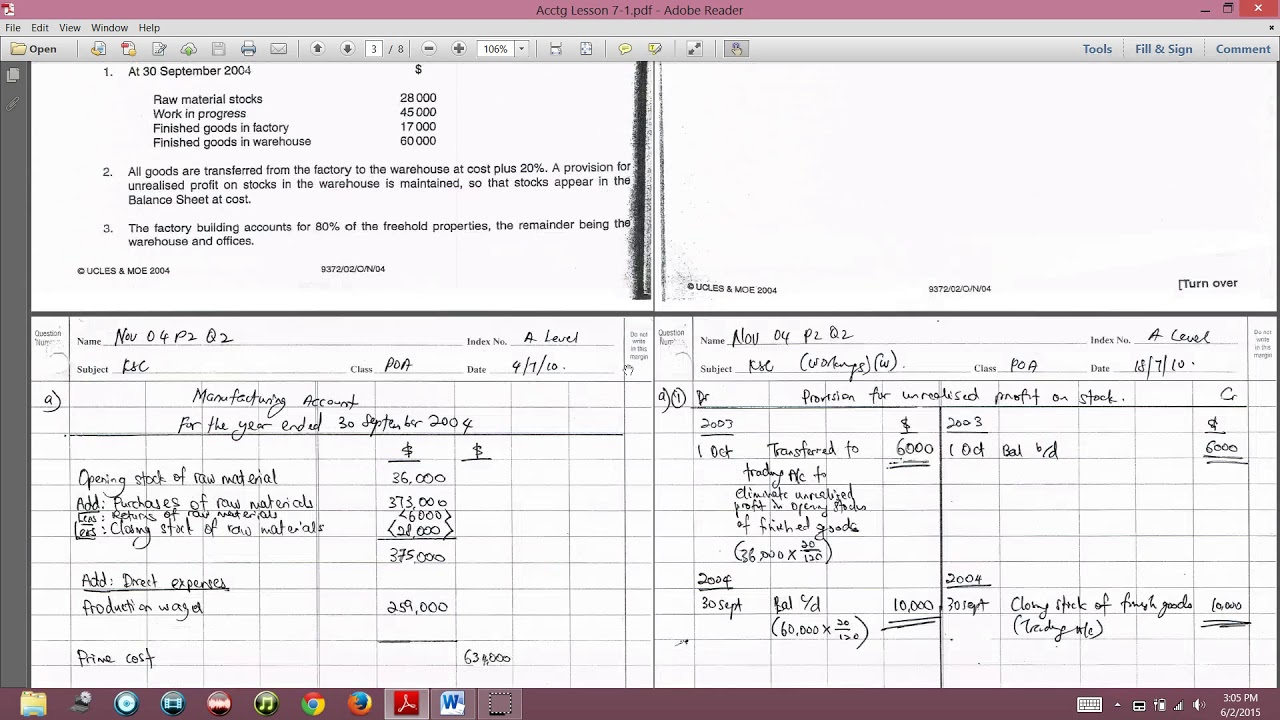 Acctg Lesson 7-1.pdf - Adobe Reader
File Edit View Window Help
Open 3 / 8 106% Tools Fill & Sign Comment
1. At 30 September 2004 $
Raw material stocks 28 000
Work in progress 45 000
Finished goods in factory 17 000
Finished goods in warehouse 60 000
2. All goods are transferred from the factory to the warehouse at cost plus 20%. A provision for
unrealised profit on stocks in the warehouse is maintained, so that stocks appear in the
Balance Sheet at cost.
3. The factory building accounts for 80% of the freehold properties, the remainder being the
warehouse and offices.
© UCLES & MOE 2004 9372/02/O/N/04
© UCLES & MOE 2004 9372/02/O/N/04 [Turn over
Question Name Nov 04 P2 Q2 Index No. A Level Do not
write
in this
margin
Subject KSC Class POA Date 4/7/10.
a) Manufacturing Account
For the year ended 30 September 2004
$ $
Opening stock of raw material 36,000
Add: Purchases of raw materials 373,000
Less: Returns of raw materials <6000>
Less: Closing stock of raw materials <28,000>
375,000
Add: Direct expenses
Production wages 259,000
Prime cost 634,000
Question Name Nov 04 P2 Q2 Index No. A Level Do not
write
in this
margin
Subject KSC (Workings)(W) Class POA Date 18/7/10.
a)(1) Dr Provision for unrealised profit on stock. Cr
2003 $ 2003 $
1 Oct Transferred to 6000 1 Oct Bal b/d 6000
trading A/c to
eliminate unrealized
profit in opening stocks
of finished goods
(36,000 x 20/120)
2004 2004
30 Sept Bal c/d 10,000 30 Sept Closing stock of finish goods 10,000
(60,000 x 20/120) (Trading A/c)
3:05 PM
6/2/2015